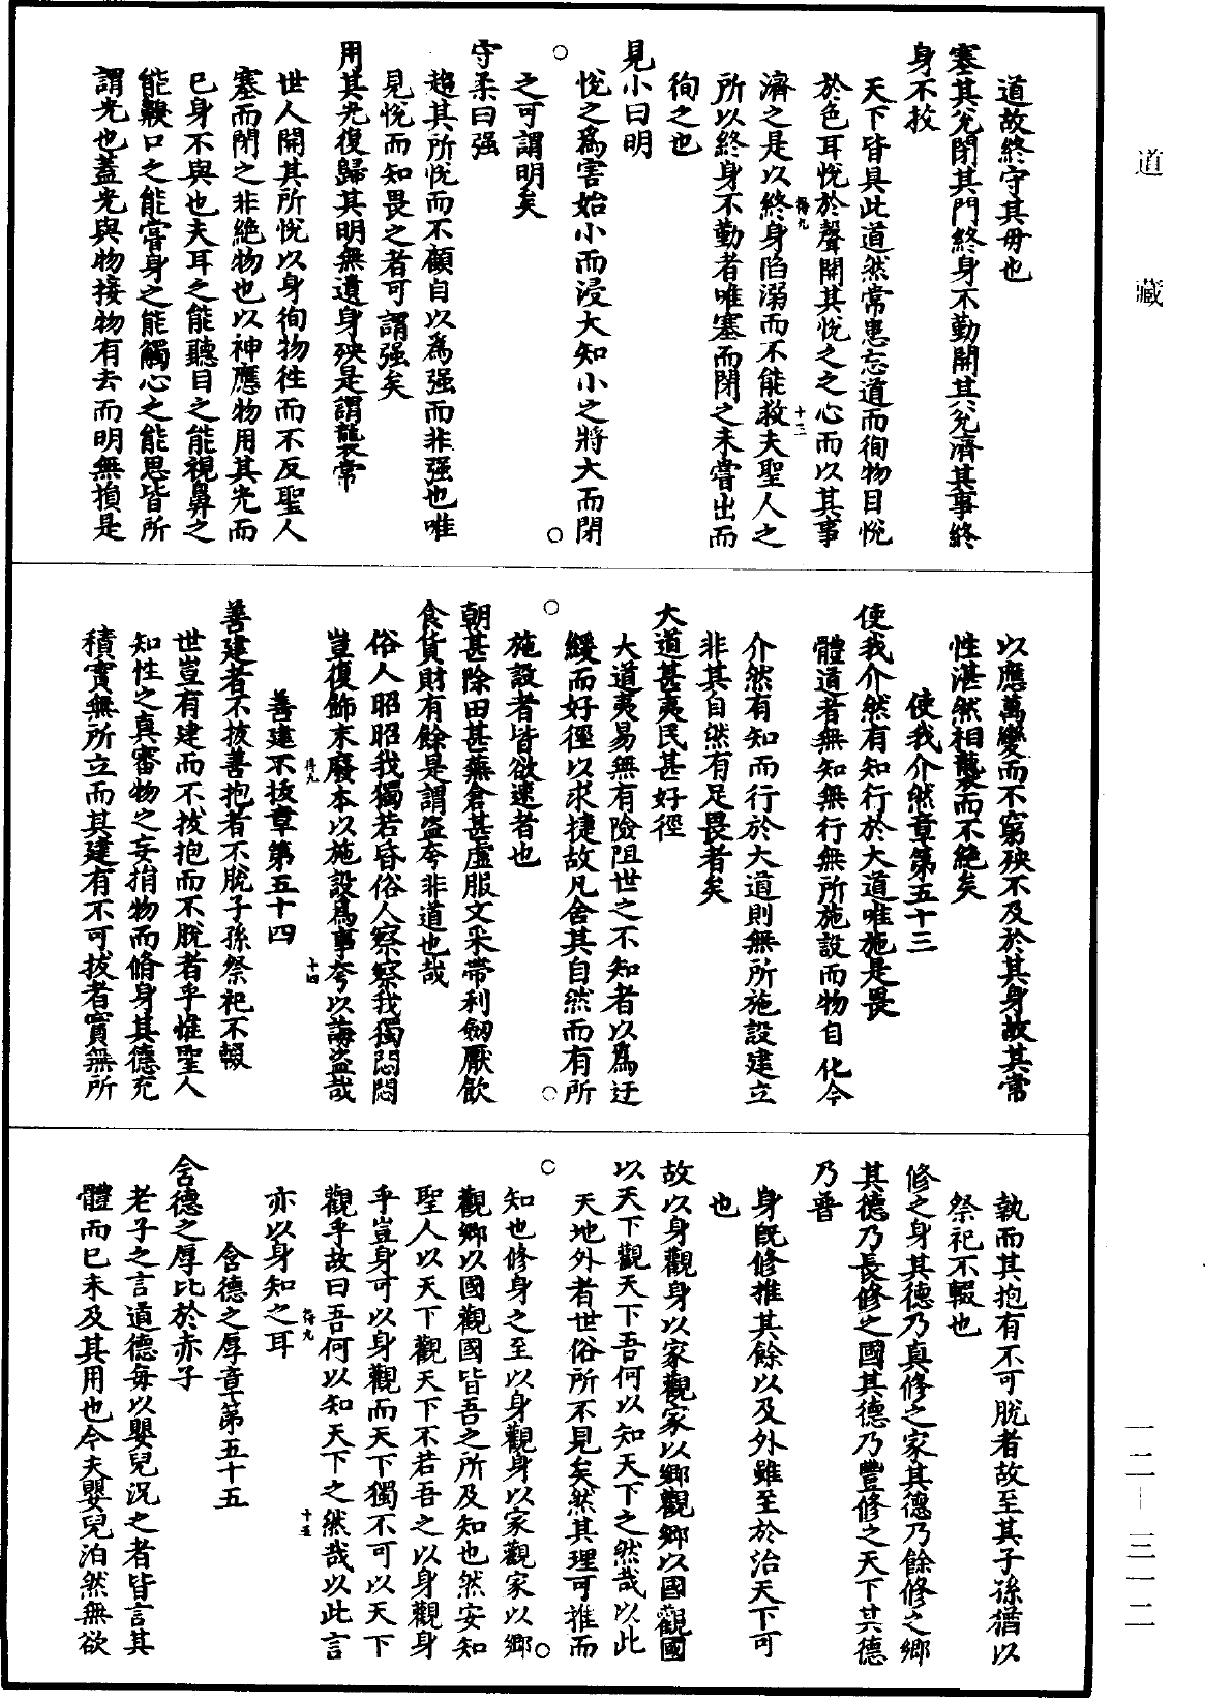 道藏
一二—三一二
道故終守其毋也
塞其兊閉其門終身不勤開其兊濟其事終
身不救
天下皆具此道然常患忘道而徇物目悅
於色耳悅於聲開其悅之之心而以其事
得九
十三
濟之是以終身陷溺而不能救夫聖人之
所以終身不勤者唯塞而閉之未嘗出而
徇之也
見小曰明
悅之爲害始小而浸大知小之將大而閉
之可謂明矣
守柔曰强
趨其所悅而不顧自以爲强而非强也唯
見悅而知畏之者可謂强矣
用其光復歸其明無遺身殃是謂襲常
世人開其所悅以身徇物徃而不反聖人
塞而閉之非絶物也以神應物用其光而
已身不與也夫耳之能聽目之能視鼻之
能齅口之能嘗身之能觸心之能思皆所
謂光也蓋光與物接物有去而明無損是
以應萬變而不窮殃不及於其身故其常
性湛然相襲而不絶矣
使我介然章第五十三
使我介然有知行於大道唯施是畏
體道者無知無行無所施設而物自化今
介然有知而行於大道則無所施設建立
非其自然有足畏者矣
大道甚夷民甚好徑
大道夷易無有險阻世之不知者以爲迂
緩而好徑以求捷故凡舍其自然而有所
施設者皆欲速者也
朝甚除田甚蕪倉甚虛服文采帶利劒厭飲
食貨財有餘是謂盜夸非道也哉
俗人昭昭我獨若昏俗人察察我獨悶悶
豈復飾末廢本以施設爲事夸以誨盜哉
得九
十四
善建不拔章第五十四
善建者不拔善抱者不脫子孫祭祀不輟
世豈有建而不拔抱而不脫者乎惟聖人
知性之真審物之妄捐物而脩身其德充
積實無所立而其建有不可拔者實無所
執而其抱有不可脫者故至其子孫猶以
祭祀不輟也
修之身其德乃真修之家其德乃餘修之鄉
其德乃長修之國其德乃豐修之天下其德
乃普
身旣修推其餘以及外雖至於治天下可
也
故以身觀身以家觀家以鄉觀鄉以國觀國
以天下觀天下吾何以知天下之然哉以此
天地外者世俗所不見矣然其理可推而
知也修身之至以身觀身以家觀家以鄉
觀鄉以國觀國皆吾之所及知也然安知
聖人以天下觀天下不若吾之以身觀身
乎豈身可以身觀而天下獨不可以天下
觀乎故曰吾何以知天下之然哉以此言
得九
十五
亦以身知之耳
含德之厚章第五十五
含德之厚比於赤子
老子之言道德每以嬰兒況之者皆言其
體而已未及其用也今夫嬰兒泊然無欲